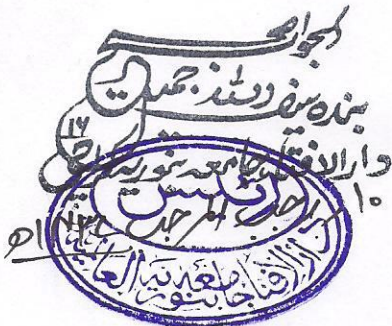 الجواب صحیح
بندہ سیف اللہ جمیل
دارالافتاء جامعہ بنوریہ کراچی
۱۰ رجب المرجب ۱۴۳۶ھ
رئیس
دار الافتاء جامعہ بنوریہ العالمیہ